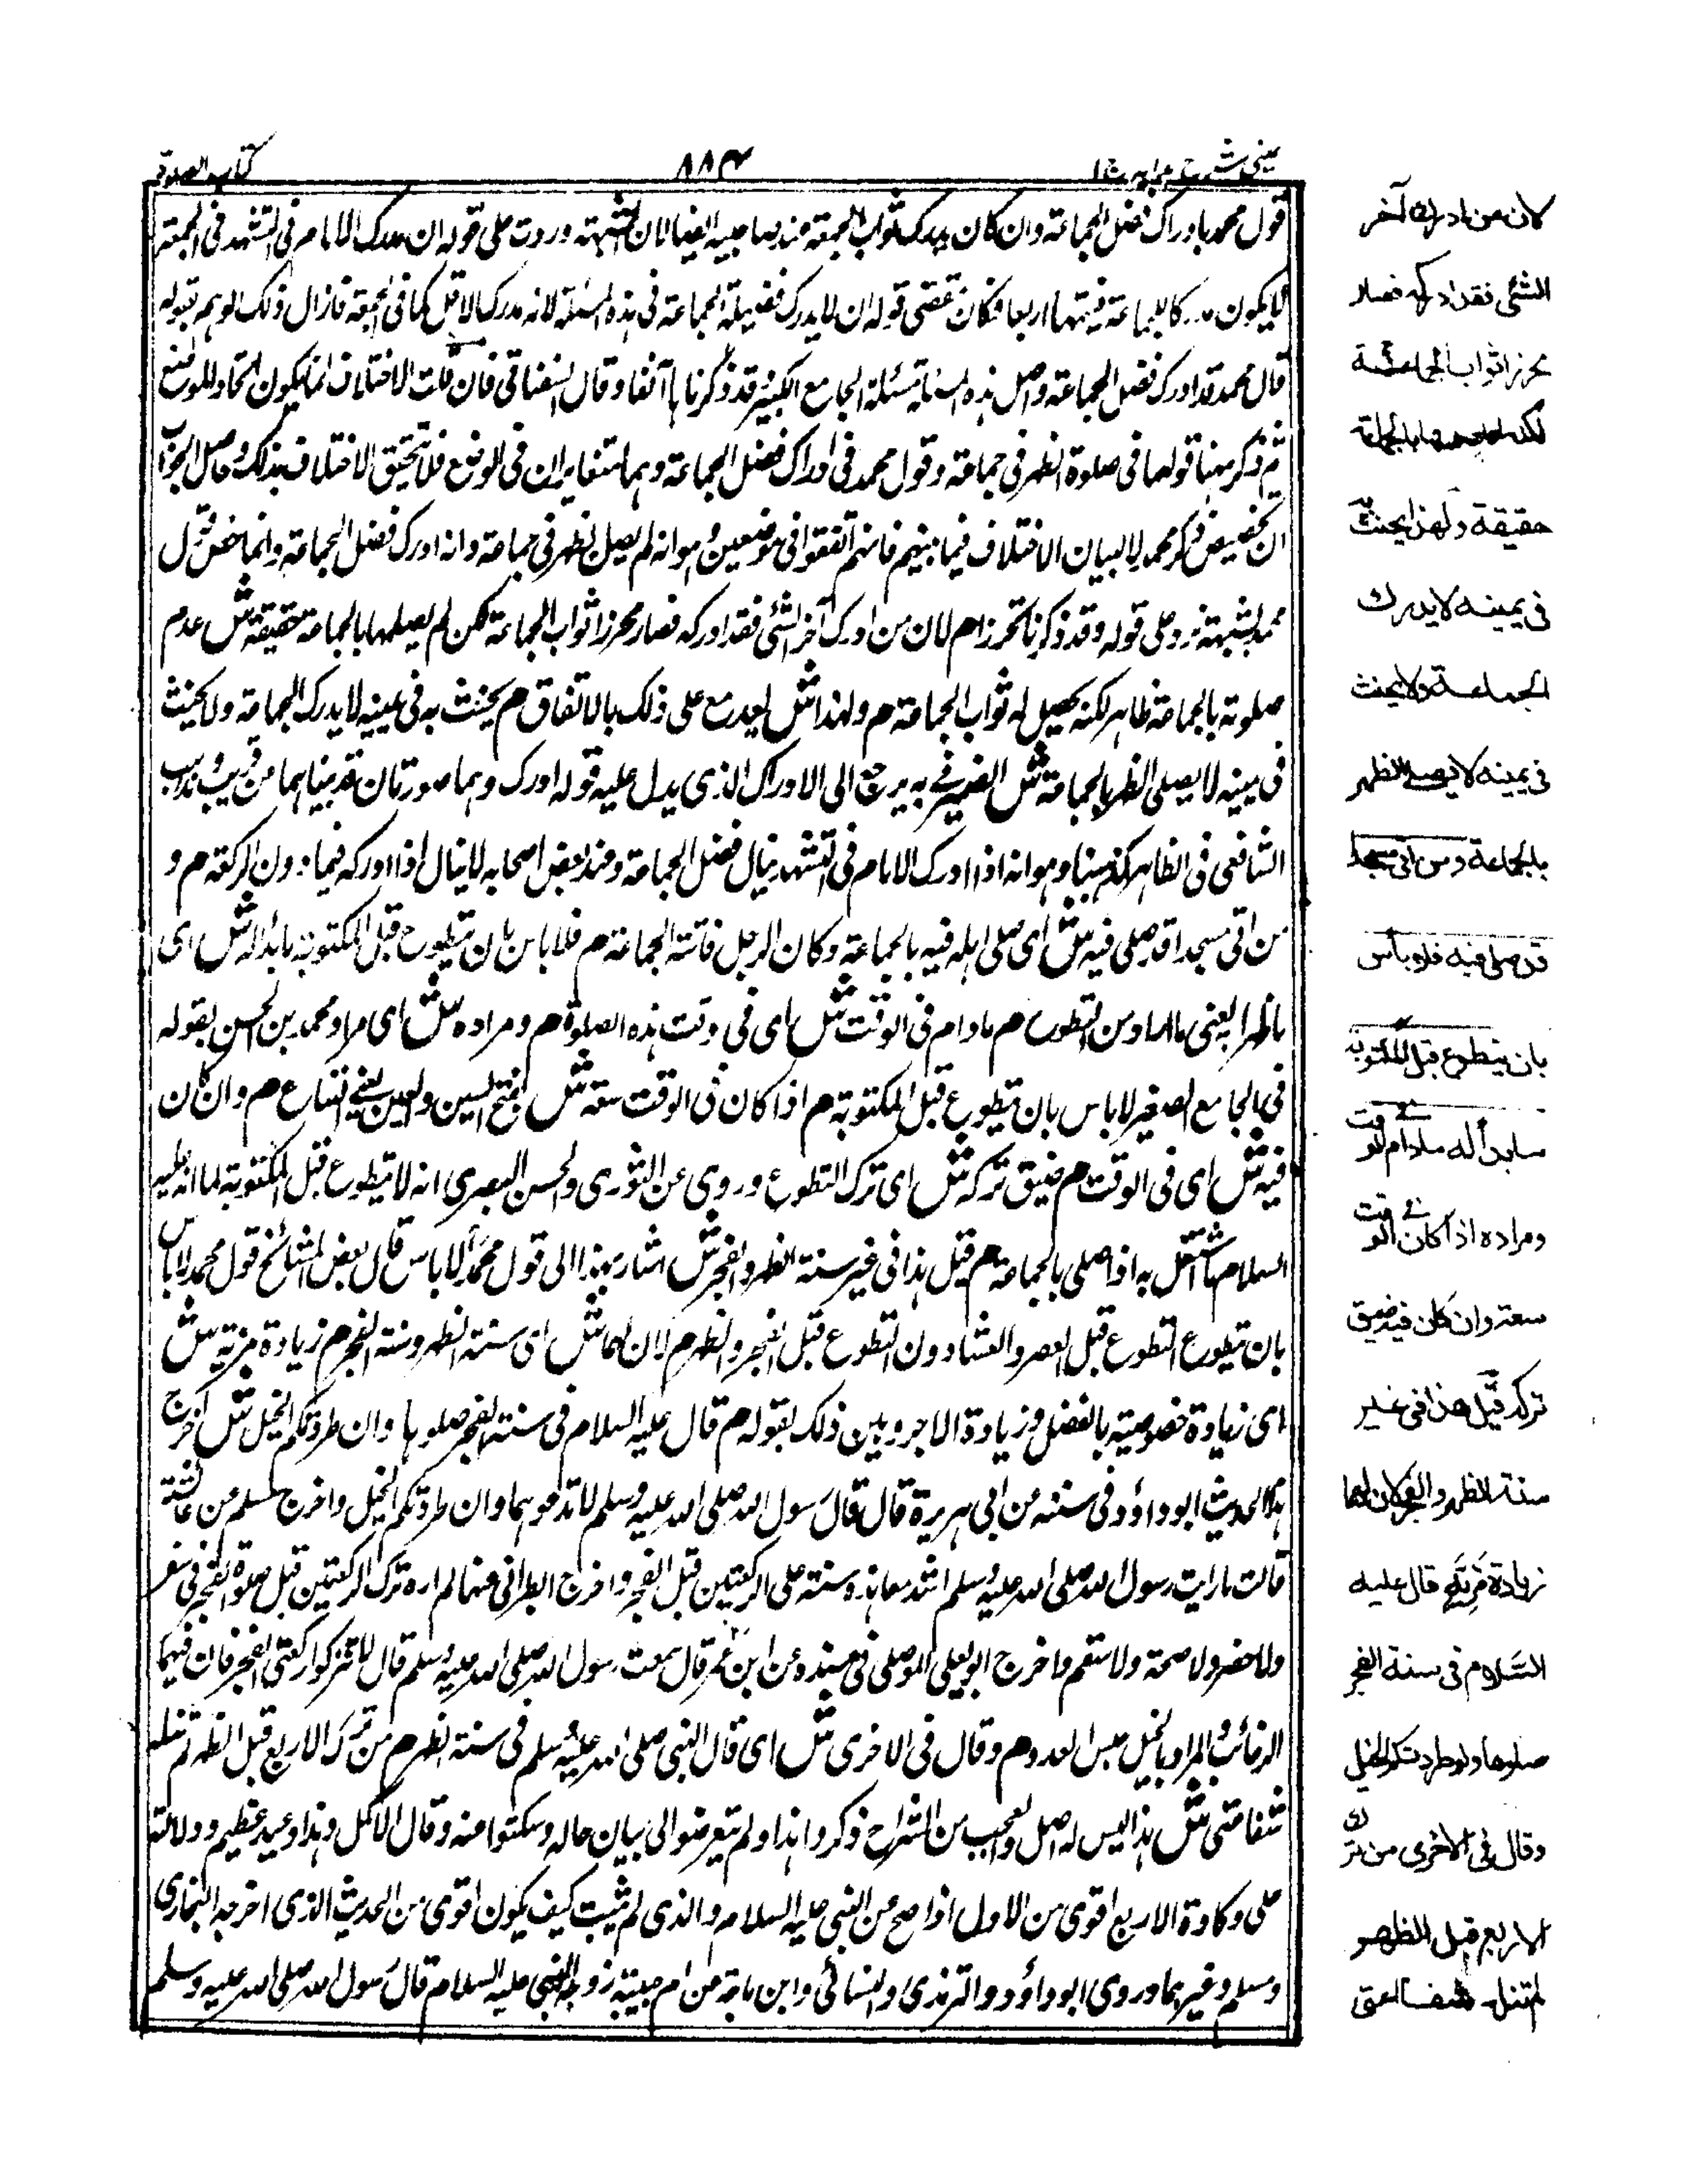 عینی شرح هدایه ج ١
٨٨٤
کتاب الصلوة
قول محمد بادراك فضل الجماعة وان كان يدرك ثواب الجمعة عند صاحبيه ايضا لان الشبهة وردت على قوله ان مدرك الامام فى التشهد فى الجمعة
لايكون مدركا للجماعة فيتمها اربعا فكان مقتضى قوله ان لا يدرك فضيلة الجماعة فى هذه المسئلة لانه مدرك الاقل كما فى الجمعة فازال ذلك الوهم بقوله
قال محمد قد ادرك فضل الجماعة واصل هذه المسئلة مسئلة الجامع الكبير وقد ذكرناها آنفا وقال السغناقى فان قلت الاختلاف انما يكون اتحاد الموضع
ثم ذكر ههنا قولهما فى صلوة الظهر فى جماعة وقول محمد فى ادراك فضل الجماعة وهما متغايران فى الوضع فلا تحقيق الاختلاف بذلك وحاصل الجواب
ان تخصيص ذكر محمد لا لبيان الاختلاف فيما بينهم فانهم اتفقوا فى موضعين وهو انه لم يصل الظهر فى جماعة وانه ادرك فضل الجماعة وانما خص قول
محمد لشبهة ترد على قوله وقد ذكرنا تحرزا م لان من ادرك آخر الشئ فقد ادركه فصار محرزا ثواب الجماعة لكن لم يصلها بالجماعة حقيقة ش عدم
صلوته بالجماعة ظاهر لكنه يحصل له ثواب الجماعة م ولهذا ش ‌ على ذلك بالاتفاق م يحنث به فى يمينه لا يدرك الجماعة ولا يحنث
فى يمينه لا يصلى الظهر بالجماعة ش الضمير فى به يرجع الى الادراك الذى يدل عليه قوله ادرك وهما صورتان قد بيناهما من قريب ومذهب
الشافعى فى الظاهر كمذهبنا وهو انه اذا ادرك الامام فى التشهد ينال فضل الجماعة وعند بعض اصحابه لا ينال اذا ادركه فيما دون الركعة م و
من اتى مسجدا قد صلى فيه ش اى صلى اهله فيه بالجماعة وكان الرجل فاتته الجماعة م فلا باس بان يتطوع قبل المكتوبة ما بدا له ش اى
ما ظهر له يعنى ما اراد من التطوع م ما دام فى الوقت ش اى فى وقت هذه الصلوة م ومراده ش اى مراد محمد بن الحسن بقوله
فى الجامع الصغير لا باس بان يتطوع قبل المكتوبة م اذا كان فى الوقت سعة ش بفتح السين والعين يعنى اتساع م وان كان
فيه ش اى فى الوقت م ضيق تركه ش اى ترك التطوع وروى عن الثورى والحسن البصرى انه لا يتطوع قبل المكتوبة لما انه عليه
السلام ما اشتغل به اذا صلى بالجماعة م قيل هذا فى غير سنة الظهر والفجر ش اشار بهذا الى قول محمد لا باس قال بعض المشائخ قول محمد لا باس
بان يتطوع التطوع قبل العصر والعشاء دون التطوع قبل الفجر والظهر م لان لهما ش اى سنة الظهر وسنة الفجر م زيادة مزية ش
اى زيادة خصوصية بالفضل وزيادة الاجر وبين ذلك بقوله م قال عليه السلام فى سنة الفجر صلوها وان طردتكم الخيل ش اخرج
هذا الحديث ابو داؤد فى سننه من ابى هريرة قال قال رسول الله صلى الله عليه وسلم لا تدعوهما وان طردتكم الخيل واخرج مسلم من عائشة
قالت ما رايت رسول الله صلى الله عليه وسلم اشد معاهدة منه على الركعتين قبل الفجر واخرج الطبرانى عنها لم اره ترك الركعتين قبل صلوة الفجر فى سفر
ولا حضر ولا صحة ولا سقم واخرج ابو يعلى الموصلى فى مسنده عن ابن عمر قال سمعت رسول الله صلى الله عليه وسلم قال لا تتركوا ركعتى الفجر فان فيهما
الرغائب والمراد بالخيل جيش العدو م وقال فى الاخرى ش اى قال النبى صلى الله عليه وسلم فى سنة الظهر م من ترك الاربع قبل الظهر لم تنله
شفاعتى ش هذا ليس له اصل والعجب من الشراح ذكروا هذا ولم يتعرضوا الى بيان حاله وسكتوا منه وقال الاكمل وهذا وعيد عظيم ودلالته
على وكادة الاربع اقوى من الاول اذا صح عن النبى عليه السلام والذى لم يثبت كيف يكون اقوى من الحديث الذى اخرجه البخارى
ومسلم وغيرهما وروى ابو داؤد والترمذى والنسائى وابن ماجة من ام حبيبة زوجة النبى عليه السلام قال رسول الله صلى الله عليه وسلم
لان من ادرك آخر
الشئ فقد ادركه فصار
محرزا ثواب الجماعة
لكنه لم يصلها بالجماعة
حقيقة ولهذا يحنث به
فى يمينه لا يدرك
الجماعة ولا يحنث
فى يمينه لا يصلى الظهر
بالجماعة ومن اتى مسجدا
قد صلى فيه فلا بأس
بان يتطوع قبل المكتوبة
ما بدأ له ما دام فى الوقت
ومراده اذا كان فى الوقت
سعة وان كان فيه ضيق
تركه قيل هذا فى غير
سنة الظهر والفجر لان لهما
زيادة مزية قال عليه
السلام فى سنة الفجر
صلوها ولو طردتكم الخيل
وقال فى الاخرى من ترك
الاربع قبل الظهر
لم تنله شفاعتى